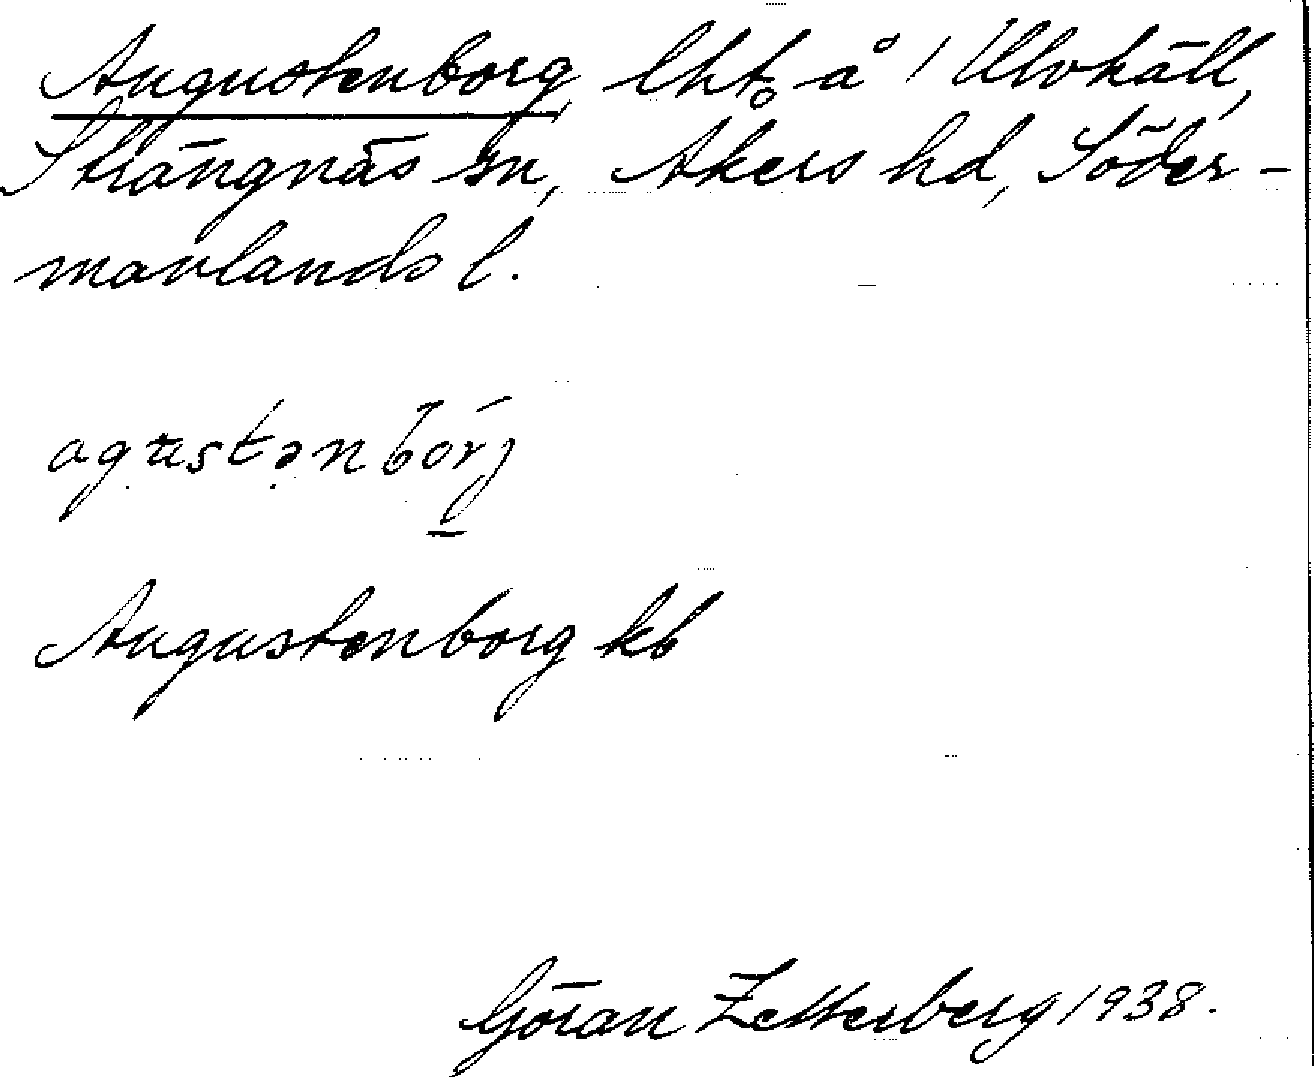 Augustenborg, lht. å 1 Ulvhäll,
Strängnäs sn, Åkers hd, Söder-
manlands l.
agustənbörj
Augustenborg kb
Göran Zetterberg 1938.